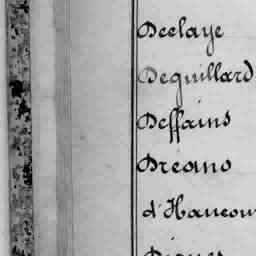 Deelaye
Deguillard
Deffains
Dréano
d'Haucour